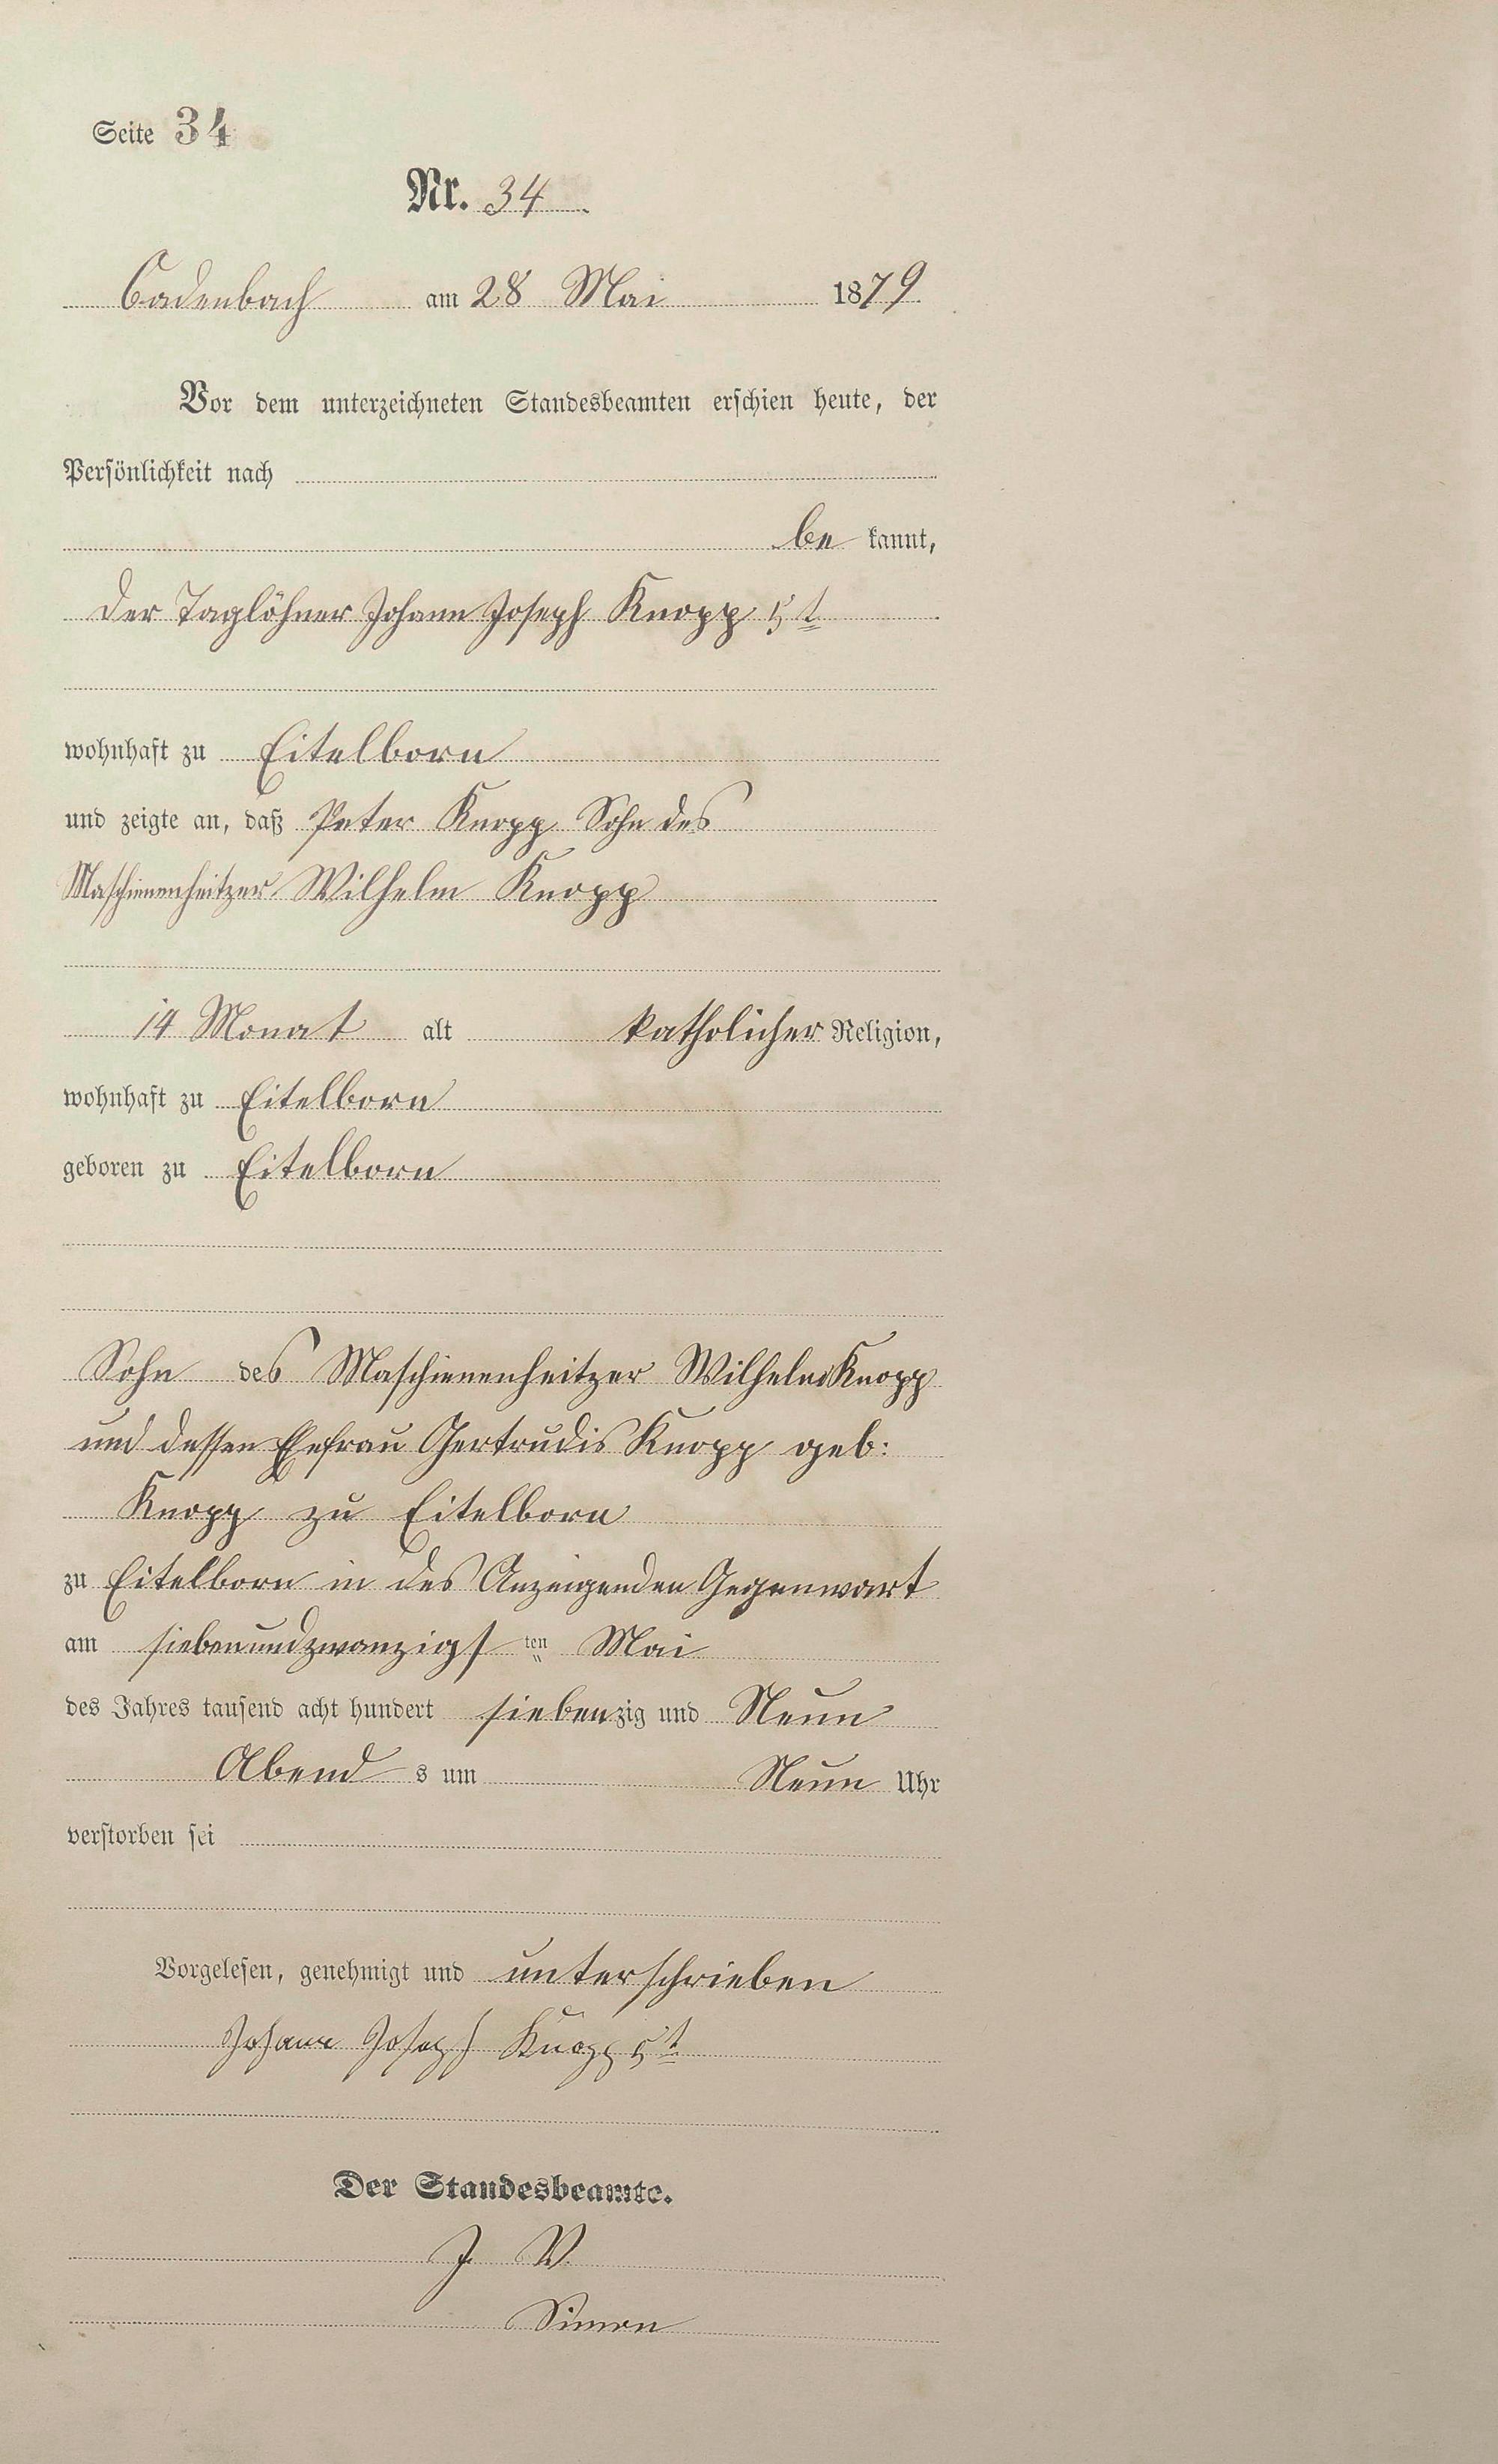 Seite 34
Nr. 34
Cadenbach am 28 Mai 1879
Vor dem unterzeichneten Standesbeamten erschien heute, der
Persönlichkeit nach
be kannt,
der Taglöhner Johann Joseph Knopp 5t
wohnhaft zu Eitelborn
und zeigte an, daß Peter Knopp Sohn des
Maschienenheitzer Wilhelm Knopp
14 Monat alt katholicher Religion,
wohnhaft zu Eitelborn
geboren zu Eitelborn
Sohn des Maschienenheitzer Wilhelm Knopp
und dessen Ehefrau Gertrudis Knopp geb:
Knopp zu Eitelborn
zu Eitelborn in des Anzeigenden Gegenwart
am siebenundzwanzigs ten Mai
des Jahres tausend acht hundert siebenzig und Neun
Abend s um Neun Uhr
verstorben sei
Vorgelesen, genehmigt und unterschrieben
Johann Joseph Knopp 5t
Der Standesbeamte.
J. V.
Simon